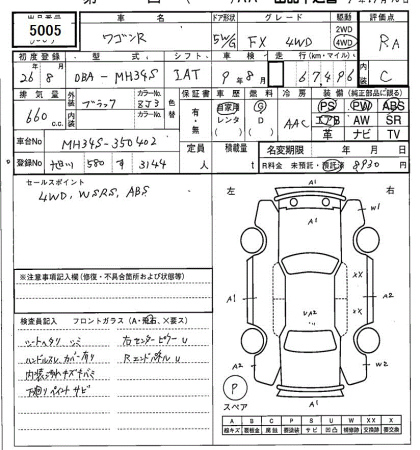 5005
車名
ワゴンR
ドア形状
5 W/G
グレード
FX 4WD
駆動
2WD
4WD
評価点
RA
C
初度登録
26年 8月
型式
DBA-MH34S
シフト
IAT
車検
9年8月
走行 (km・マイル)
67,496
排気量
660 c.c.
外装 ブラック
内装
カラーNo.
8J3
カラーNo.
色替
保証書
有・無
車歴
自家用
レンタ
燃料
G
D
冷房
AAC
装備 (純正部品に限る)
PS PW ABS
エアB AW SR
革 ナビ TV
車台No MH34S-350402
登録No 旭川 580 す 3144
定員 人
積載量 t
名変期限 年 月 日
R料金 未預託・預託済 8930円
セールスポイント
4WD, WSRS, ABS
※注意事項記入欄(修復・不具合箇所および状態等)
検査員記入 フロントガラス (A・飛石、×要ス)
シートヘタリ シミ
右センターピラーU
ハンドルスレ カバー有り
RエンドパネルU
内装汚れキズキバミ
下廻りペイントサビ
左
右
A1
W1
A1
XX
UA2
XX
A2
A2
W2
A1
P
スペア
A B C P S U W X XX
線キズ 要板金 腐食 要塗装 サビ 凹凸 補修跡 要交換 交換済